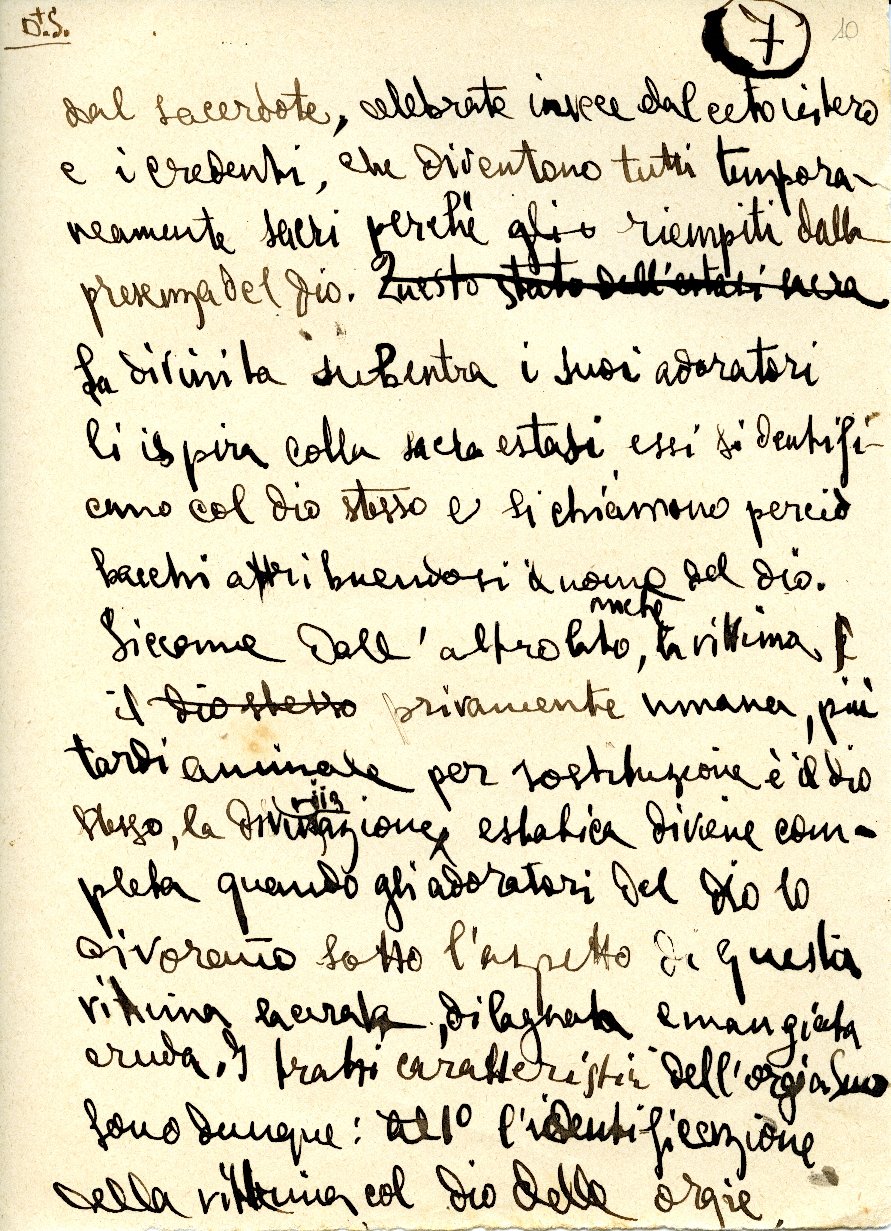 D.S.
7
10
dal sacerdote, celebrate invece dal ceto intero
e i credenti, che diventano tutti tempora-
neamente sacri perché riempiti dalla
presenza del dio. Questo stato dell'estasi sacra
La divinità subentra i suoi adoratori
li ispira colla sacra estasi essi si dentifi-
cano col dio stesso e si chiamano perciò
bacchi attribuendosi il nome del dio.
Siccome dall'altro lato, anche la vittima
il dio stesso primamente umana, più
tardi animale per sostituzione è il dio
stesso, la estatica diviene com-
pleta quando gli adoratori del dio lo
divorano sotto l'aspetto di questa
vittima lacerata, dilaniata e mangiata
cruda. I tratti caratteristici dell'orgiasmo
sono dunque: 1º l'identificazione
della vittima col dio delle orgie,